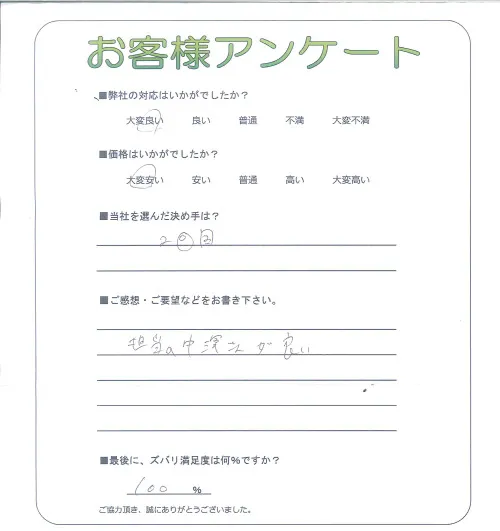 お客様アンケート
■弊社の対応はいかがでしたか？
大変良い 良い 普通 不満 大変不満
■価格はいかがでしたか？
大変安い 安い 普通 高い 大変高い
■当社を選んだ決め手は？
2回目
■ご感想・ご要望などをお書き下さい。
担当の中深さんが良い
■最後に、ズバリ満足度は何%ですか？
100 %
ご協力頂き、誠にありがとうございました。